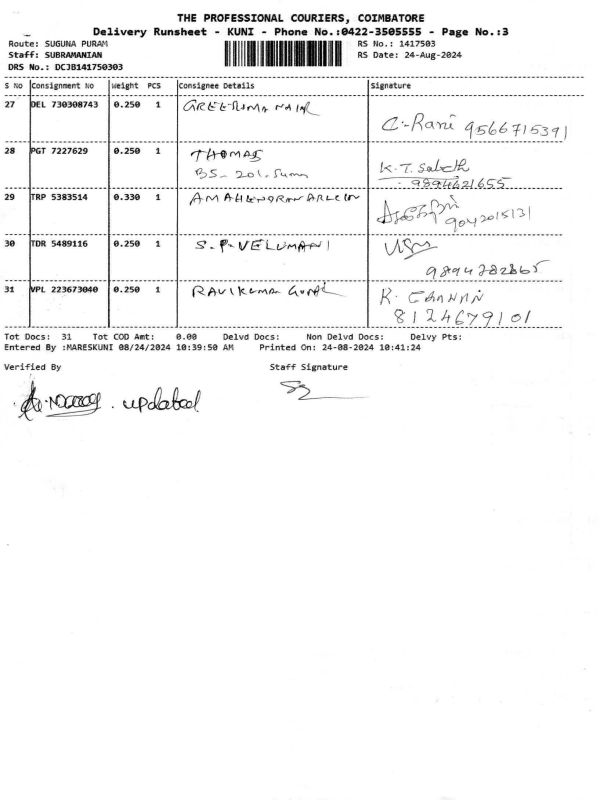 THE PROFESSIONAL COURIERS, COIMBATORE
Delivery Runsheet - KUNI - Phone No.:0422-3505555 - Page No.:3
Route: SUGUNA PURAM
RS No.: 1417503
Staff: SUBRAMANIAN
RS Date: 24-Aug-2024
DRS No.: DCJB141750303
S No Consignment No Weight PCS Consignee Details Signature
27 DEL 730308743 0.250 1 GREERIMA NAIR
C. Rani 9566715391
28 PGT 7227629 0.250 1 THOMAS
BS- 201. Suma
K.T. Sabeth
9894621655
29 TRP 5383514 0.330 1
9042015131
30 TDR 5489116 0.250 1 S.P. VELUMANI
9894782865
31 VPL 223673040 0.250 1 RAVIKUMA GOPAL
R.
8124679101
Tot Docs: 31 Tot COD Amt: 0.00 Delvd Docs: Non Delvd Docs: Delvy Pts:
Entered By :MARESKUNI 08/24/2024 10:39:50 AM Printed On: 24-08-2024 10:41:24
Verified By Staff Signature
updated